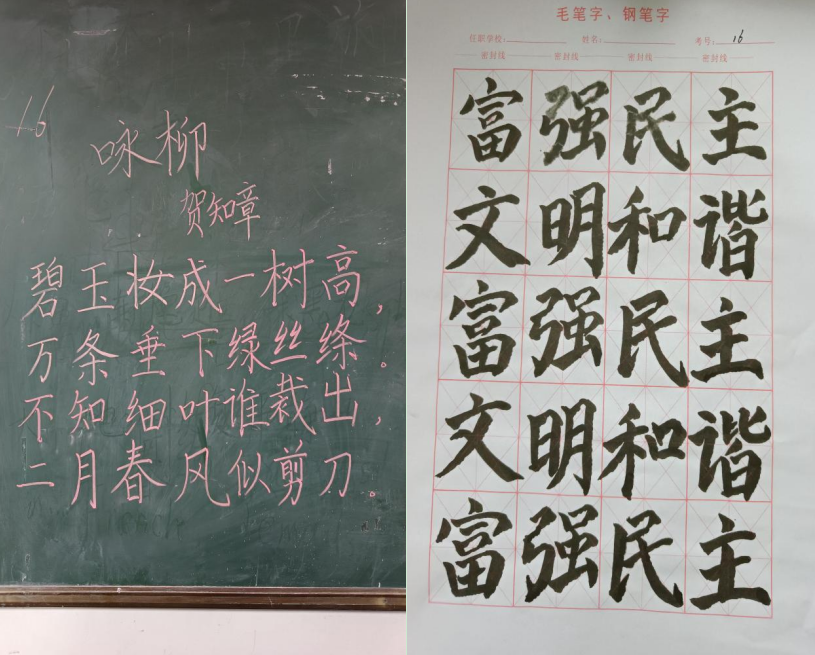 16
咏柳
贺知章
碧玉妆成一树高,
万条垂下绿丝绦。
不知细叶谁裁出,
二月春风似剪刀。
毛笔字、钢笔字
任职学校: 姓名: 考号: 16
密封线 密封线 密封线 密封线
富强民主
文明和谐
富强民主
文明和谐
富强民主